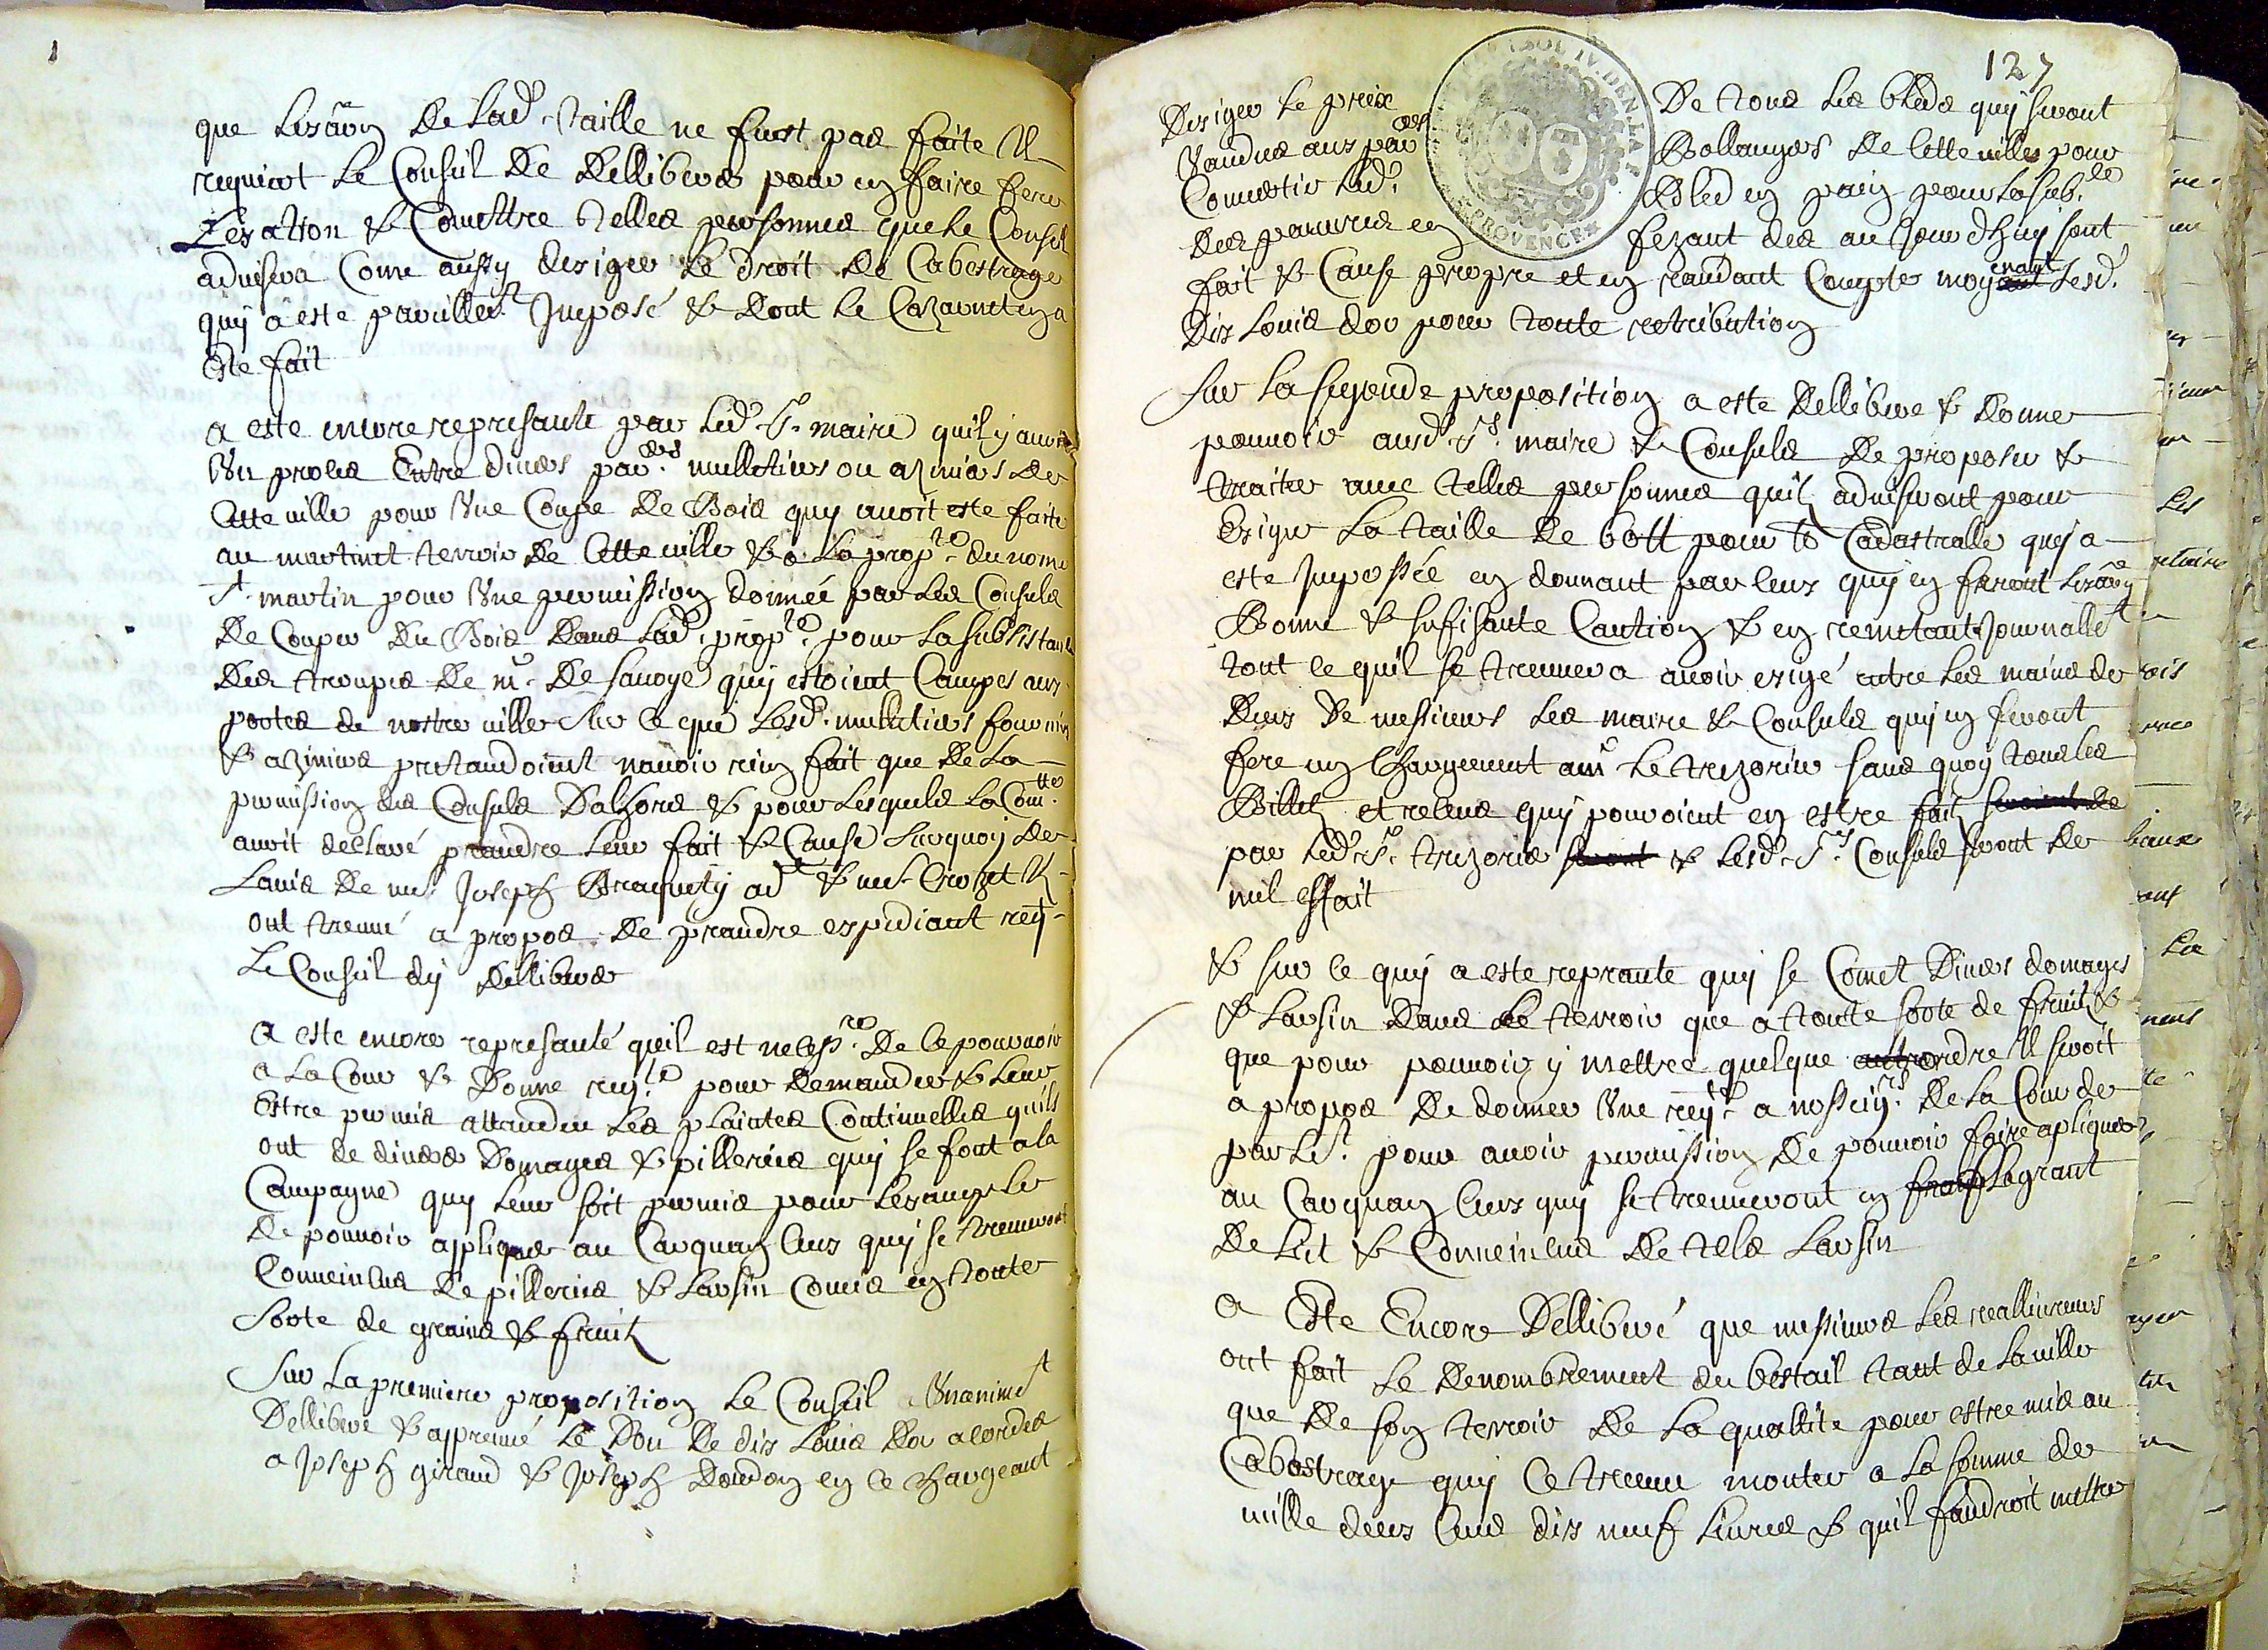 que lexaõn de lad. taille ne fust pas faite Il
requiert le Conseil de delliberer pour en faire fere
Lexation & Comettre telles personnes que le Conseil
advisera Come aussy dexiger le droit de Cabestrage
quy a este pareillemt Imposé & dont le Cazarnet en a
este fait
a este encore represanté par led. Sr. maire quil y auroit
Un proces Entre divers pars. mulletiers ou aziniers de
Cette ville pour Une Coupe de Bois quy avoit este faite
au martinet terroir de Cette ville & a la propte. du nomé
St. martin pour Une permission donnée par les Consuls
de Couper du Bois dans lad. propte. pour la subsistance
des troupes de mr. de savoye quy estoient Campes aux
portes de nostre ville Sur ce que lesd. mulletiers fourniers
& aziniers pretandoient navoir rien fait que de la
permission des Consuls dalhors & pour lesquels la Comtte.
auroit declaré prandre leur fait & Cause Surquoy de
Lavis de me. Joseph Braquety adt & me. Crozet Il
ont treuvé a propos de prandre expediant reqt.
Le Conseil dy delliberer
a este encore represanté quil est necessre. de ce pourvoir
a la Cour & donne reqte. pour demander & leur
Estre permis attandeu les plaintes Continuelles quils
ont de divers domages & pilleries quy se font a la
Campagne quy leur soit permis pour les
de pouvoir appliquer au Carquan ceux quy se treuveront
Conveincus de pilleries & larsin Comis en toute
sorte de grains & fruitz
Sur la premiere proposition le Conseil a Unanimet
dellibere & appreuvé le don de dix Louis dor acordes
a Joseph giraud & Joseph en ce chargeant
127
SOL IV.DEN.LA F
PROVENCE
Dexiger le prix de tous les bleds quy seront
Vandus aux pars. Bollangers de Cette ville pour
Convertir led. Bled en pain pour la subce.
des pauvres en fezant des au Jourdhuy sont
fait & Cause propre et en randant Compte moyenant lesd.
dix Louis dor pour toute retribution
Sur la segonde proposition a este dellibere & donne
pouvoir ausd. Srs. maire & Consuls de proposer &
traiter avec telles personnes quilz adviseront pour
Exiger la taille de 6ott pour to Cadastralle quy a
este Impossée en donnant par ceux quy en feront lexaõn
Bonne & sufisante Caution & en remetant Journallemt
tout ce quil se treuvera avoir exigé entre les mains de
deux de messieurs les maire & Consuls quy en feront
fere un Chargement au Sr. le trezorier sans quoy tous les
Billetz et relevés quy pouroient en estre faitz seroient de
par led. Sr. trezorier seront & lesd. Srs. Consuls seront de
nul effait
& sur ce quy a este repranté quy se Comet divers domages
& Larsin dans le terroir que a toute sorte de fruitz &
que pour pouvoir y mettre quelque autre ordre Il seroit
a propos de donner Une reqte. a nosseigrs. de la Cour de
parlet. pour avoir permission de pouvoir faire apliquer
au Carquan ceux quy se treuveront en flagrant
delict & Conveincus de tels Larsin
a Este Encore Dellibere que messieurs les reallivreurs
ont fait le denombrement du bestail tant de la ville
que de son terroir de la qualite pour estre mis au
Cabestrage quy ce treuve monter a la somme de
mille deux Cens dix neuf livres & quil faudroit mettre